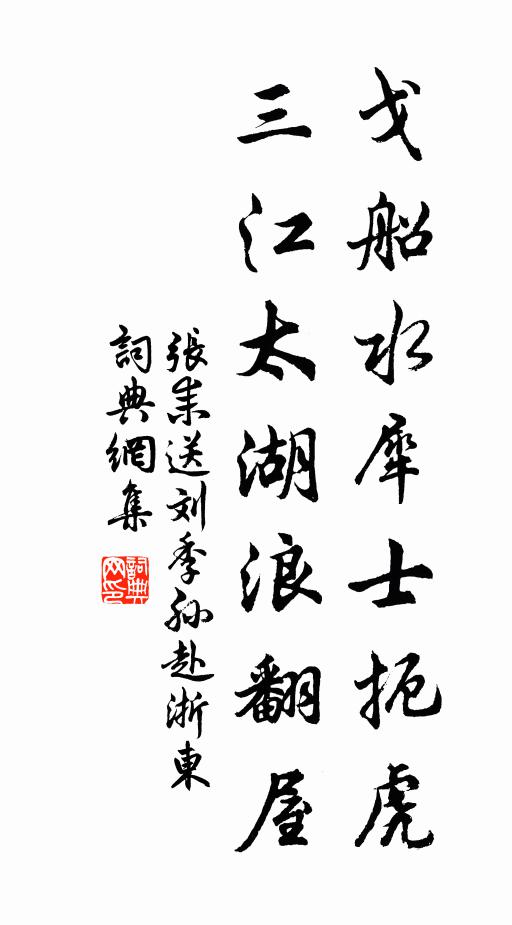 戈船水犀士扼虎
三江太湖浪翻屋
張耒送刘季孙赴浙東
詞典網集
詞典网印